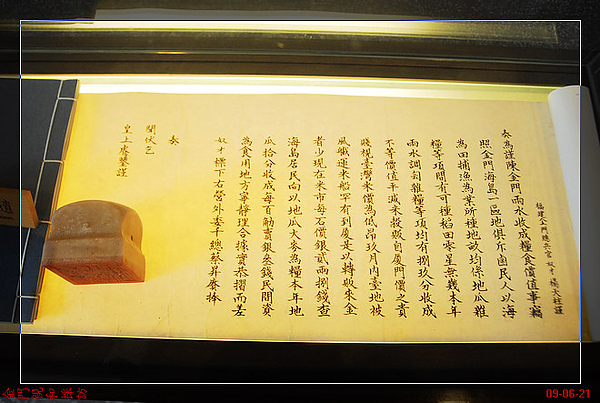 福建金門總兵官奴才楊天柱謹
奏為謹陳金門雨水收成糧食價值事竊
照金門海島一區地俱斥鹵民人以海
為田捕漁為業所種地畝均係地瓜雜
糧等項間有可種稻田零星無幾本年
雨水調勻雜糧等項均有捌玖分收成
不等價值平減米穀販自廈門價之貴
賤視臺灣米價為低昂玖月內臺地被
風艱運來船罕有到廈是以轉販米金
者少現在米市每石價銀貳兩捌錢查
海島居民向以地瓜大麥為糧本年地
瓜拾分收成每百觔賣銀叁錢民間資
為食用地方寧靜理合據實恭摺而差
奴才標下右營外委千總蔡昇賫捧
奏
聞伏乞
皇上睿鑒謹
09-06-21